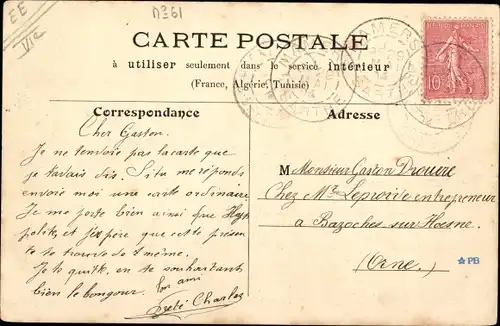 EE
VIe
N° 61
CARTE POSTALE
à utiliser seulement dans le service intérieur
(France, Algérie, Tunisie)
Correspondance
Adresse
10
Cher Gaston.
Je ne t'envoie pas la carte que
je t'avais dis. Si tu me réponds
envoie moi une carte ordinaire
Je me porte bien ainsi que
polite, et j'espère que cette présen
te te trouve de même.
Je te quitte, en te souhaitant
bien le bonjour. ton ami
Charles
M Monsieur Gaston Drouire
Chez Mr Leproide entrepreneur
a Bazoches sur Hoesne
(Orne)
PB